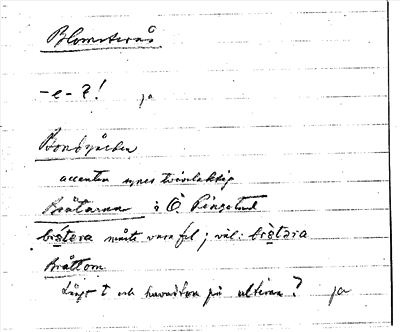 Blomsterås
-e- ? ! ja
Bronbäcken
accenten synes tvivelaktig
Bråtarna i Ö. Ringstad
bråtera måste vara fel; väl: bråtära
Bråttom
Långt t och huvudton på ultiman? ja